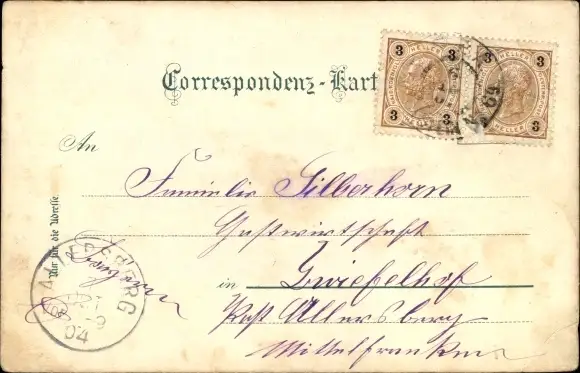 Correspondenz-Kart
3 HELLER 3
3 3
3 HELLER 3
3 3
69
An
Familie Silberhorn
Gastwirtschaft
in Zwiefelhof
Post Allersberg
Mittelfranken
Nur für die Adresse.
ALLERSBERG
9
04